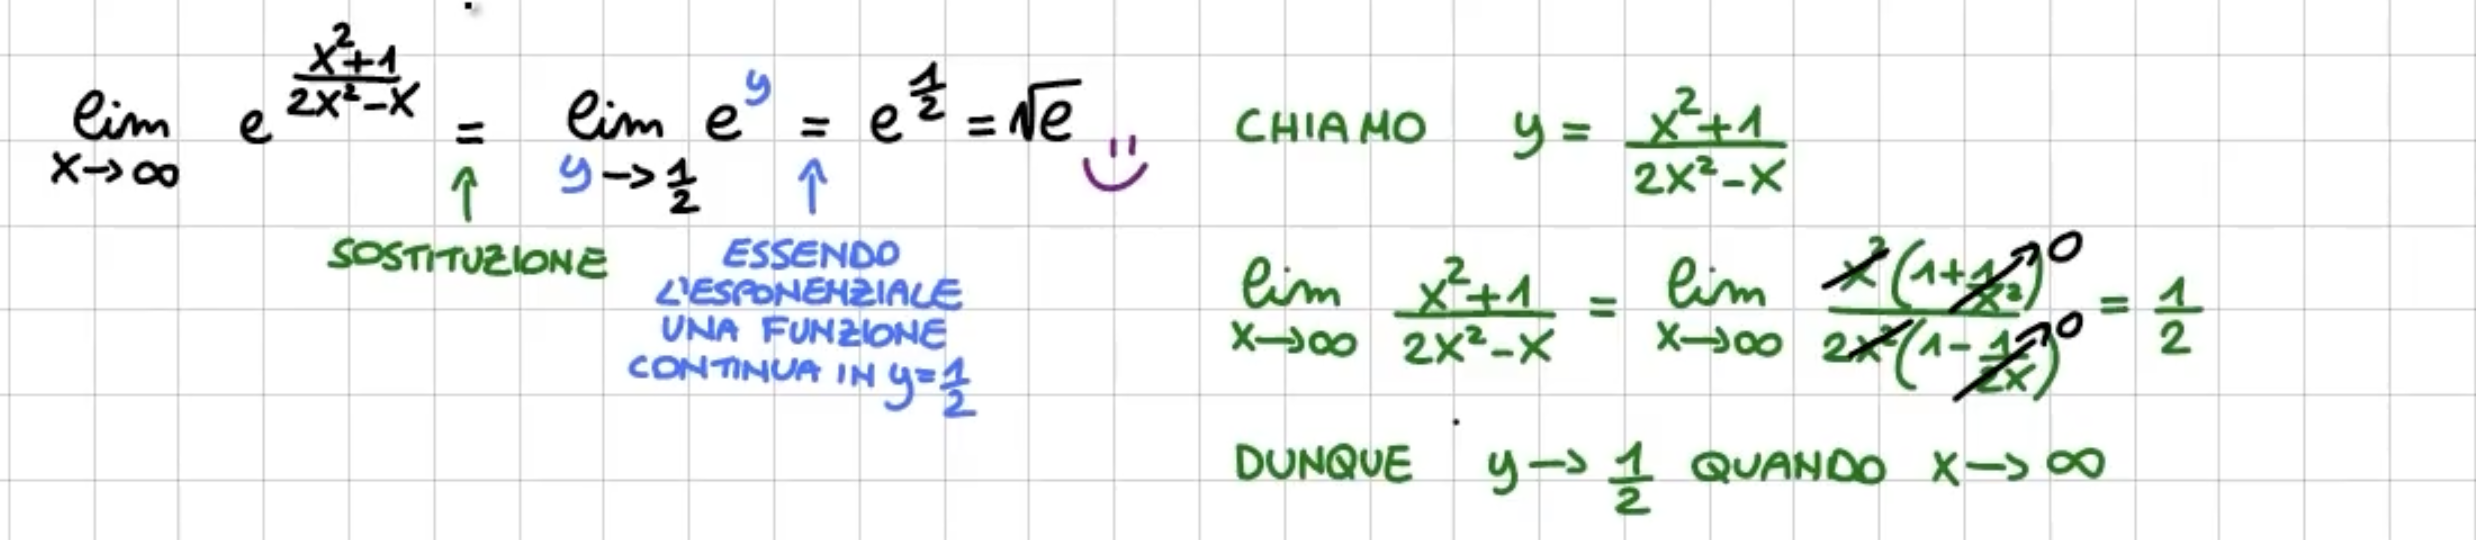 lim x→∞ e^((x²+1)/(2x²-x)) = lim y→1/2 e^y = e^(1/2) = √e
↑ ↑
SOSTITUZIONE
ESSENDO
L'ESPONENZIALE
UNA FUNZIONE
CONTINUA IN y=1/2
CHIAMO y = (x²+1)/(2x²-x)
lim x→∞ (x²+1)/(2x²-x) = lim x→∞ x²(1+1/x²)→0 / 2x²(1-1/2x)→0 = 1/2
DUNQUE y→1/2 QUANDO x→∞